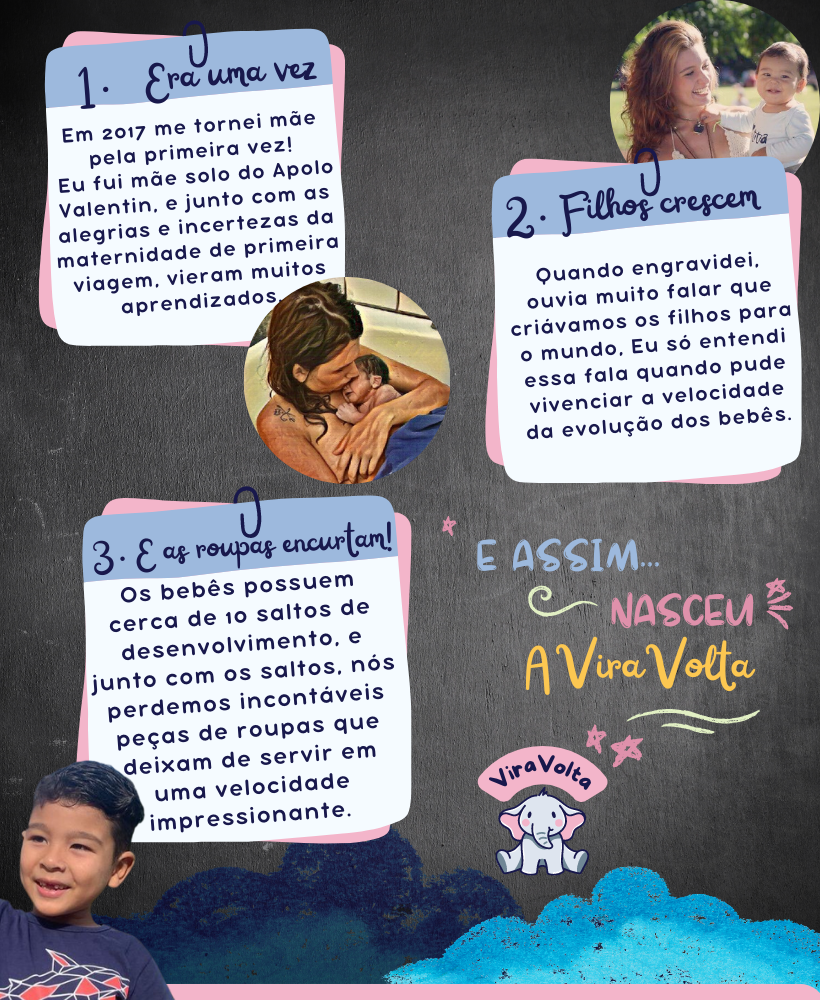 1. Era uma vez
Em 2017 me tornei mãe
pela primeira vez!
Eu fui mãe solo do Apolo
Valentin, e junto com as
alegrias e incertezas da
maternidade de primeira
viagem, vieram muitos
aprendizados.
2. Filhos crescem
Quando engravidei,
ouvia muito falar que
criávamos os filhos para
o mundo, Eu só entendi
essa fala quando pude
vivenciar a velocidade
da evolução dos bebês.
3. E as roupas encurtam!
Os bebês possuem
cerca de 10 saltos de
desenvolvimento, e
junto com os saltos, nós
perdemos incontáveis
peças de roupas que
deixam de servir em
uma velocidade
impressionante.
E ASSIM...
NASCEU
A Vira Volta
ViraVolta